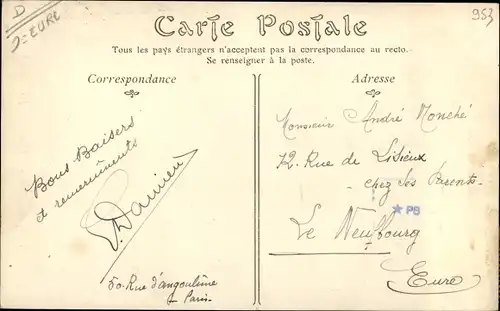 D
D=EURE
953
Carte Postale
Tous les pays étrangers n'acceptent pas la correspondance au recto.
Se renseigner à la poste.
Correspondance
Bons Baisers
et remerciments
Damien
50. Rue d'angoulême
Paris.
Adresse
Monsieur André Monché
72. Rue de Lisieux
chez ses Parents
Le Neubourg
Eure
PB